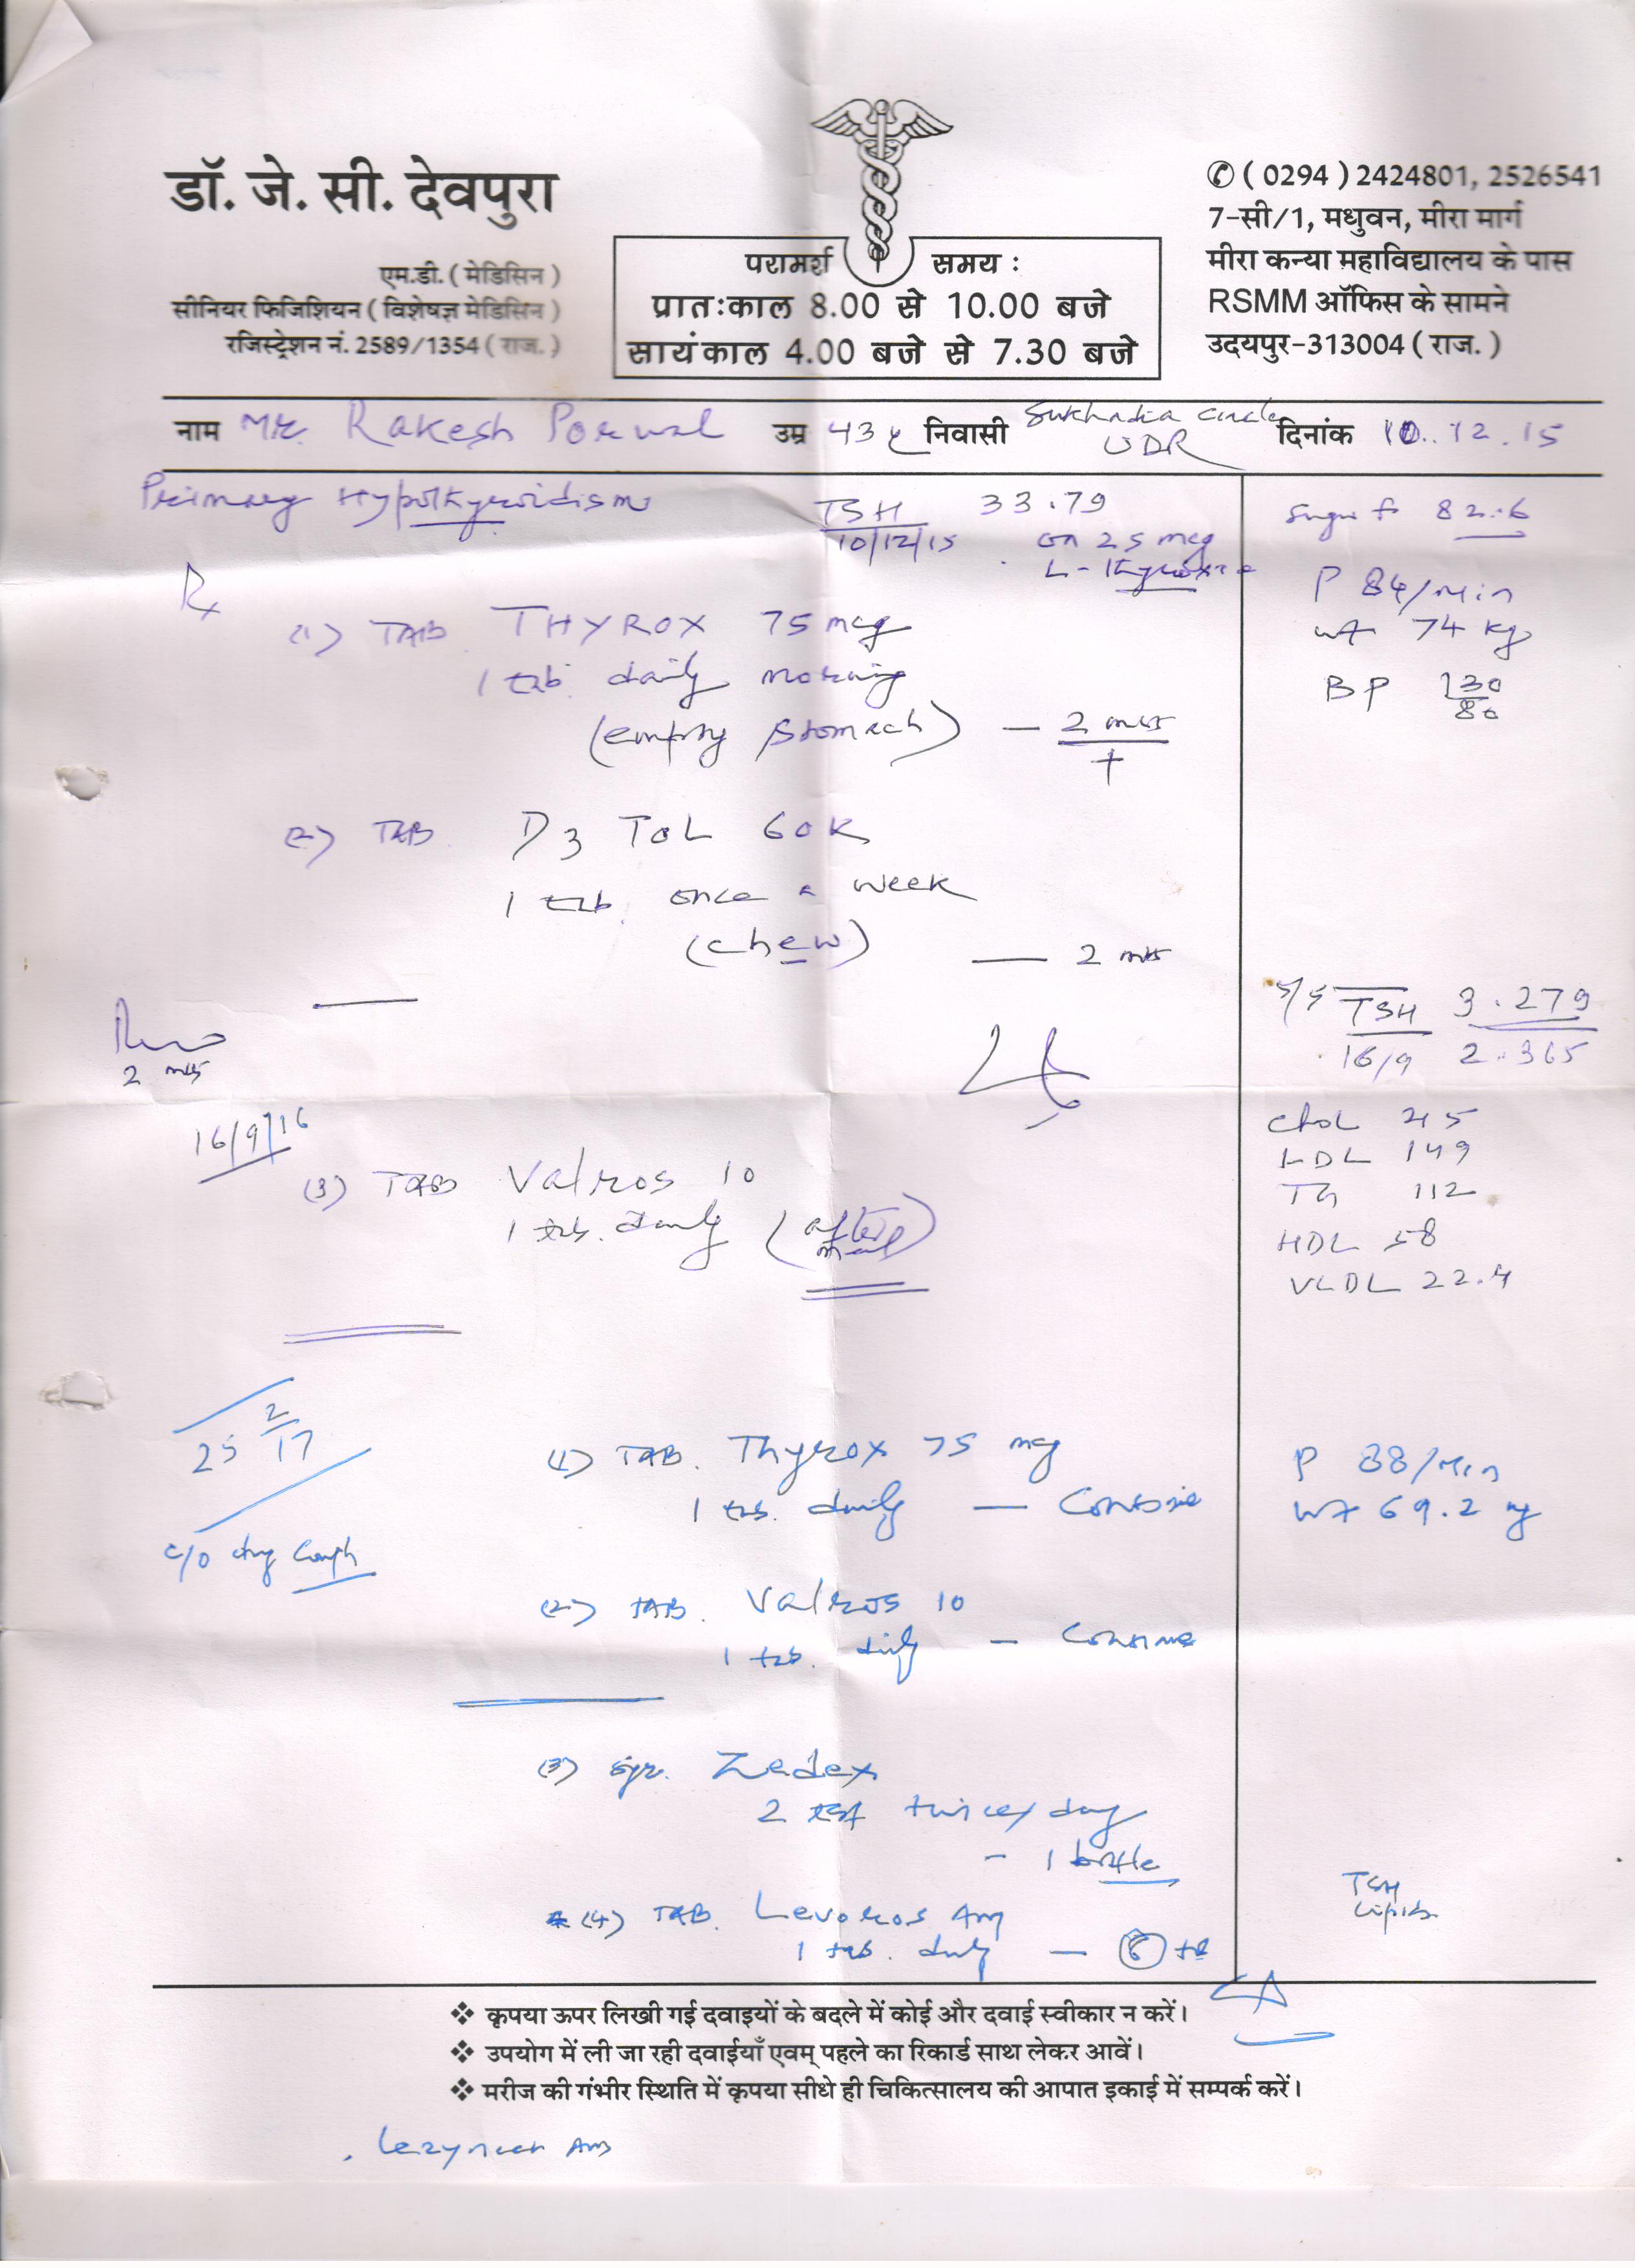 डॉ. जे. सी. देवपुरा
एम.डी. ( मेडिसिन )
सीनियर फिजिशियन ( विशेषज्ञ मेडिसिन )
रजिस्ट्रेशन नं. 2589/1354 ( राज. )
परामर्श समय :
प्रातःकाल 8.00 से 10.00 बजे
सायंकाल 4.00 बजे से 7.30 बजे
✆ ( 0294 ) 2424801, 2526541
7-सी/1, मधुवन, मीरा मार्ग
मीरा कन्या महाविद्यालय के पास
RSMM ऑफिस के सामने
उदयपुर-313004 ( राज. )
नाम Mr. Rakesh Porwal उम्र 43 y निवासी Sukhadia Circle UDR दिनांक 10.12.15
Primary Hypothyroidism
TSH 33.79
10/12/15 on 25 mcg
L-Thyroxine
Sugar f 82.6
P 84/min
wt 74 kg
BP 130/80
Rx
(1) TAB THYROX 75 mcg
1 tab. daily morning
(empty stomach) — 2 mts
(2) TAB D3 TOL 60K
1 tab. once a week
(chew) — 2 mts
2 mts
5/5 TSH 3.279
16/9 2.365
Chol 215
LDL 149
TG 112
HDL 58
VLDL 22.4
16/9/16
(3) TAB Valros 10
1 tab. daily (after meal)
25/2/17
c/o dry cough
(1) TAB. Thyrox 75 mcg
1 tab. daily — Continue
P 88/min
wt 69.2 kg
(2) TAB. Valros 10
1 tab. daily — Continue
(3) Syr. Zedex
2 tsf twice/day
- 1 bottle
(4) TAB. Levoros Am
1 tab. daily —
TSH
Lipids
❖ कृपया ऊपर लिखी गई दवाइयों के बदले में कोई और दवाई स्वीकार न करें।
❖ उपयोग में ली जा रही दवाईयाँ एवम् पहले का रिकार्ड साथ लेकर आवें।
❖ मरीज की गंभीर स्थिति में कृपया सीधे ही चिकित्सालय की आपात इकाई में सम्पर्क करें।